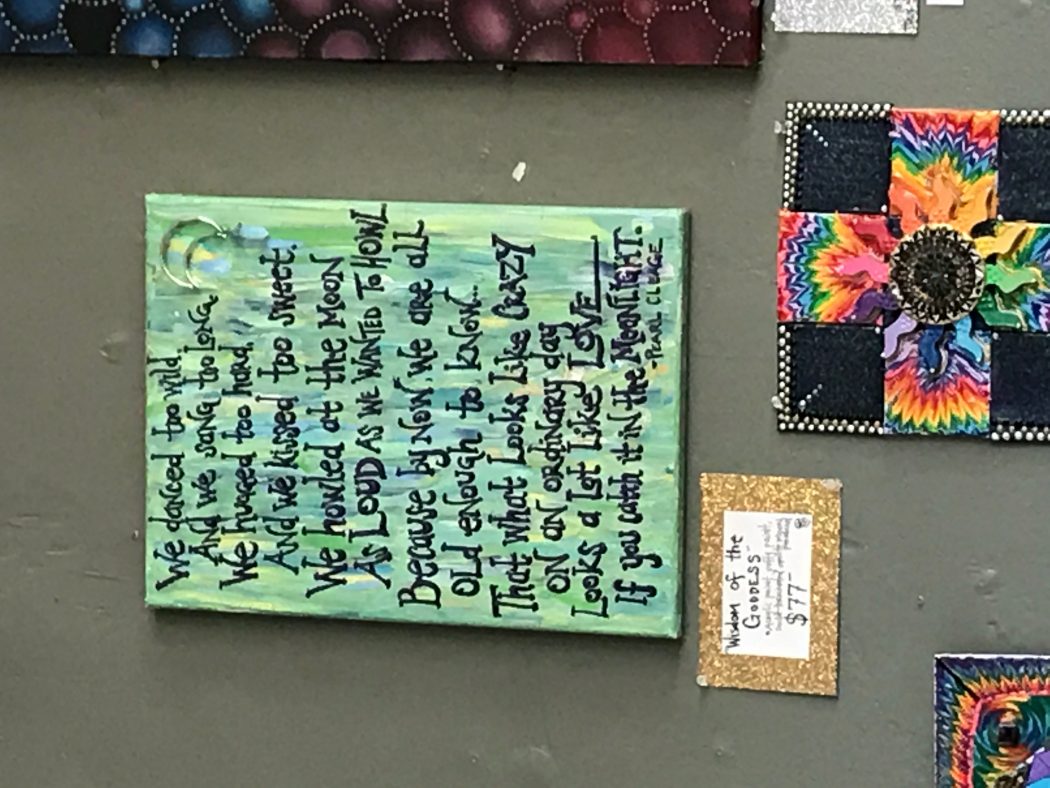 We danced too wild,
And we sang too long,
We hugged too hard,
And we kissed too sweet.
We howled at the Moon
As LOUD AS WE WANTED To HOWL
Because by NOW, we are all
OLD enough to know...
That what Looks Like CRAZY
ON AN ORDINARY day
Looks a Lot Like LOVE
If you catch it in the MOONLIGHT.
-PEARL CLEAGE
Wisdom of the
GODDESS
$77-